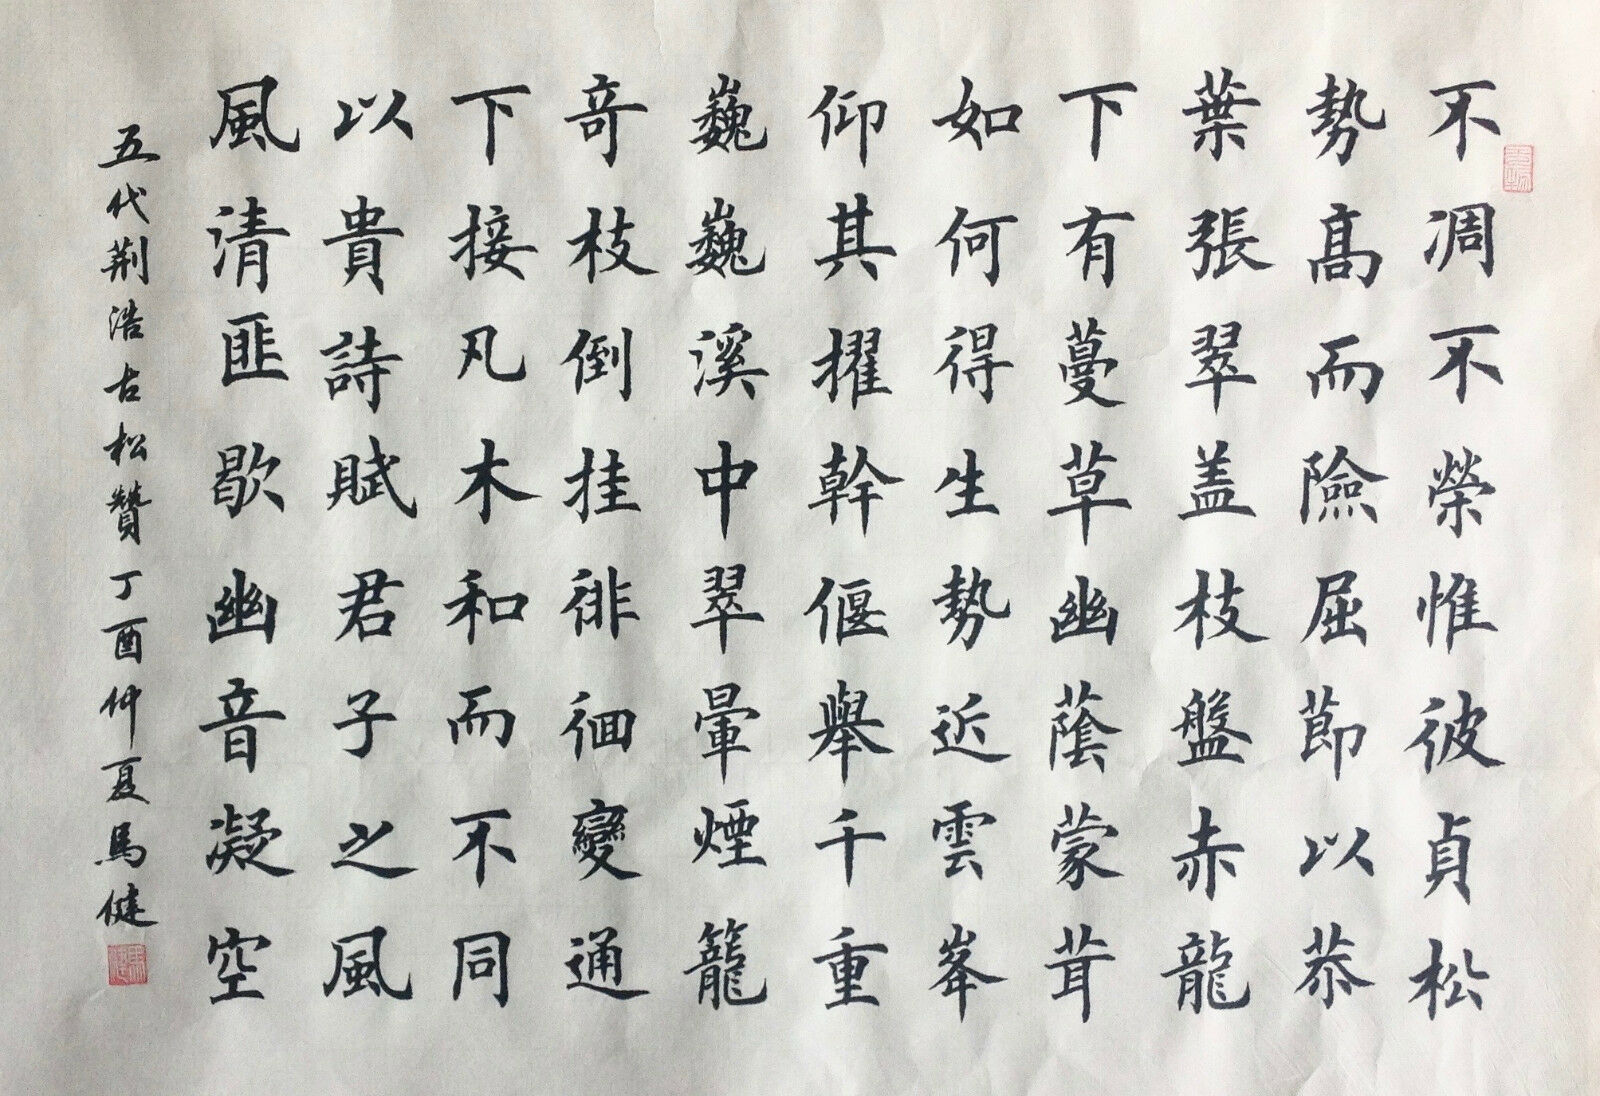 不凋不榮惟彼貞松
勢高而險屈節以恭
葉張翠盖枝盤赤龍
下有蔓草幽蔭蒙茸
如何得生勢近雲峯
仰其擢幹偃舉千重
巍巍溪中翠暈煙籠
竒枝倒挂徘徊變通
下接凡木和而不同
以貴詩賦君子之風
風清匪歇幽音凝空
五代荆浩古松贊丁酉仲夏馬健